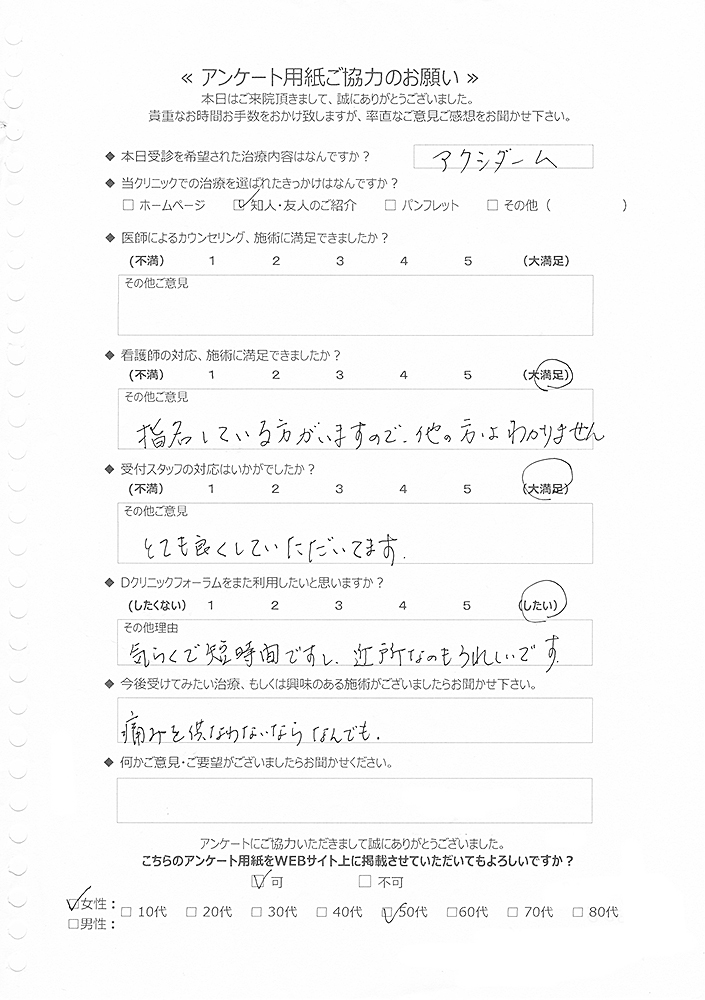 ≪ アンケート用紙ご協力のお願い ≫
本日はご来院頂きまして、誠にありがとうございました。
貴重なお時間お手数をおかけ致しますが、率直なご意見ご感想をお聞かせ下さい。
◆ 本日受診を希望された治療内容はなんですか？ アクシダーム
◆ 当クリニックでの治療を選ばれたきっかけはなんですか？
□ ホームページ ☑ 知人・友人のご紹介 □ パンフレット □ その他（ ）
◆ 医師によるカウンセリング、施術に満足できましたか？
(不満) 1 2 3 4 5 (大満足)
その他ご意見
◆ 看護師の対応、施術に満足できましたか？
(不満) 1 2 3 4 5 (大満足)
その他ご意見
指名している方がいますので、他の方はわかりません
◆ 受付スタッフの対応はいかがでしたか？
(不満) 1 2 3 4 5 (大満足)
その他ご意見
とても良くしていただいてます.
◆ Dクリニックフォーラムをまた利用したいと思いますか？
(したくない) 1 2 3 4 5 (したい)
その他理由
気らくで短時間ですし、近所なのもうれしいです.
◆ 今後受けてみたい治療、もしくは興味のある施術がございましたらお聞かせ下さい。
痛みを供なわないならなんでも.
◆ 何かご意見・ご要望がございましたらお聞かせください。
アンケートにご協力いただきまして誠にありがとうございました。
こちらのアンケート用紙をWEBサイト上に掲載させていただいてもよろしいですか？
☑ 可 □ 不可
☑女性： □ 10代 □ 20代 □ 30代 □ 40代 ☑50代 □60代 □ 70代 □ 80代
□男性：